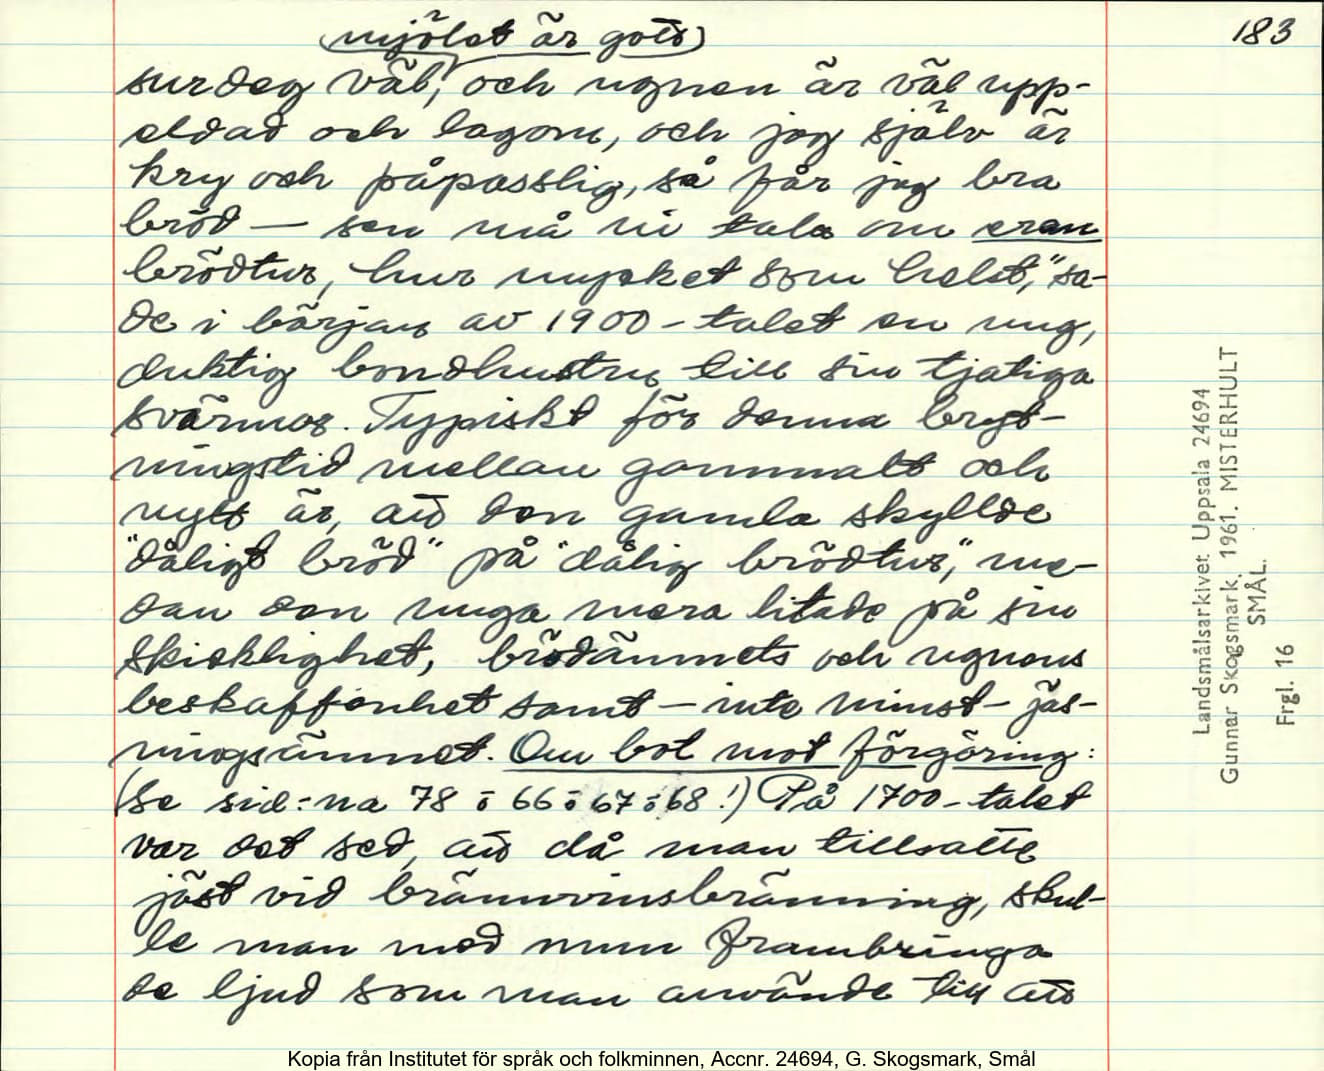 183
(mjölet är gott)
surdeg väl, och ugnen är väl upp-
eldad och lagom, och jag själv är
kry och påpasslig, så får jag bra
bröd — sen må ni tala om eran
brödtur, hur mycket som helst," sa-
de i början av 1900-talet en ung,
duktig bondhustru till sin tjatiga
svärmor. Typiskt för denna bryt-
ningstid mellan gammalt och
nytt är, att den gamla skyllde
"dåligt bröd" på "dålig brödtur," me-
dan den unga mera litade på sin
skicklighet, brödämnets och ugnens
beskaffenhet samt — inte minst — jäs-
ningsämnet. Om bot mot förgöring:
(Se sid:na 78 o 66 o 67 o 68!) På 1700-talet
var det sed, att då man tillsatte
jäst vid brännvinsbränning, skul-
le man med mun frambringa
de ljud som man använde till att
Landsmålsarkivet Uppsala 24694
Gunnar Skogsmark. 1961. MISTERHULT
SMÅL.
Frgl. 16
Kopia från Institutet för språk och folkminnen, Accnr. 24694, G. Skogsmark, Smål